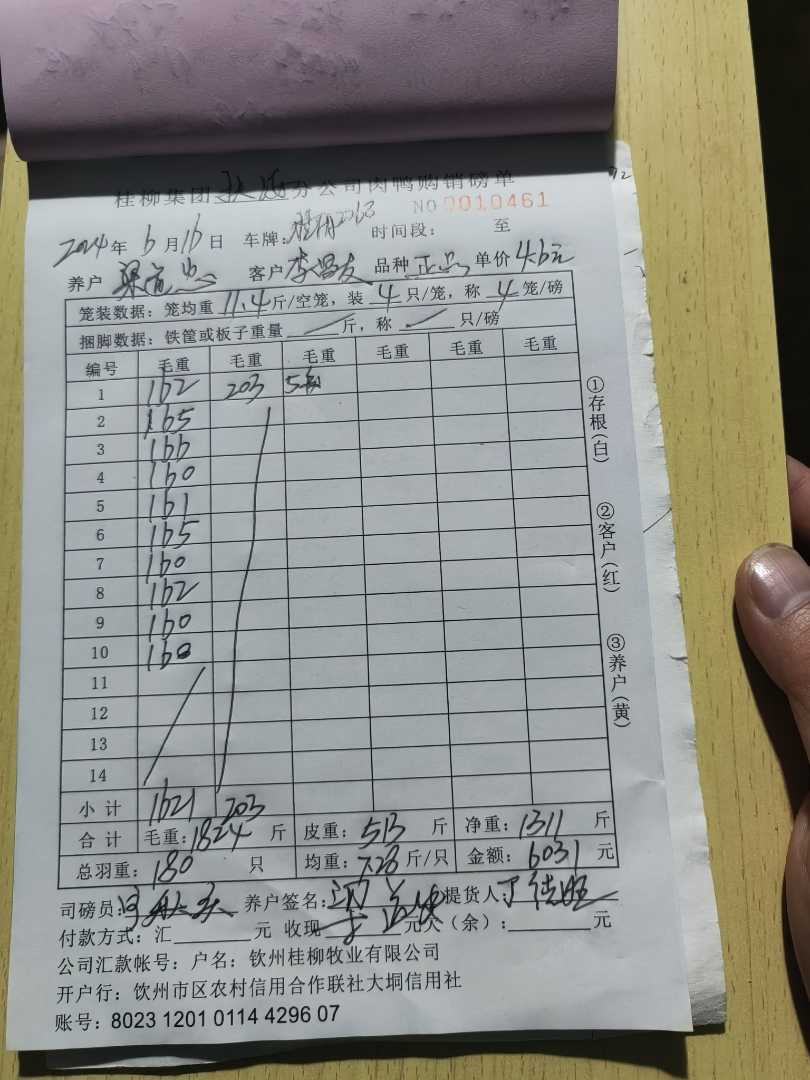 桂柳集团 分公司肉鸭购销磅单
NO 0010461
2024年6月16日 车牌: 时间段: 至
养户 客户 李昌友 品种 正品 单价 4.6元
笼装数据：笼均重 11.4 斤/空笼，装 4 只/笼，称 4 笼/磅
捆脚数据：铁筐或板子重量 斤，称 只/磅
编号 毛重 毛重 毛重 毛重 毛重 毛重
1 162 203 5
2 165
3 166
4 160
5 161
6 165
7 160
8 162
9 160
10 160
11
12
13
14
小计 1621 203
合计 毛重：1824 斤 皮重：513 斤 净重：1311 斤
总羽重：180 只 均重：7.28 斤/只 金额：6031 元
司磅员: 养户签名: 提货人:
付款方式：汇 元 收现 元欠（余）: 元
公司汇款帐号：户名：钦州桂柳牧业有限公司
开户行：钦州市区农村信用合作联社大垌信用社
账号：8023 1201 0114 4296 07
①存根(白)
②客户(红)
③养户(黄)